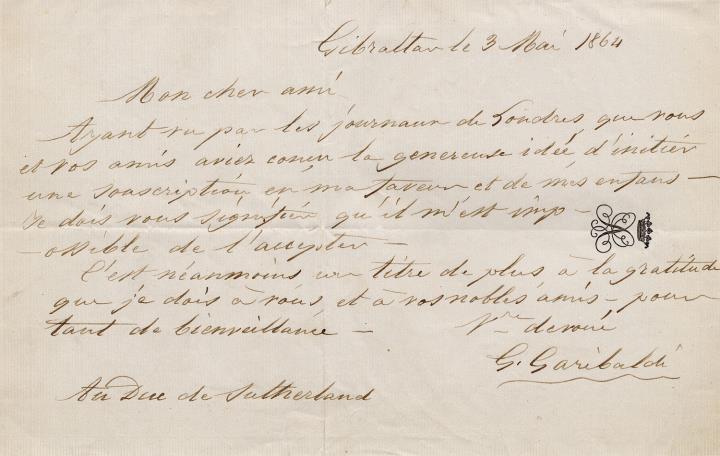 Gibraltar le 3 Mai 1864
Mon cher ami
Ayant vu par les journaux de Londres que vous
et vos amis aviez concu la genereuse idée d'initier
une souscription en ma faveur et de mes enfans –
Je dois vous signifier qu'il m'est imp –
– ossible de l'accepter –
C'est néanmoins un titre de plus à la gratitude
que je dois à vous et à vos nobles amis – pour
tant de bienveillance – Vre devoué
G. Garibaldi
Au Duc de Sutherland